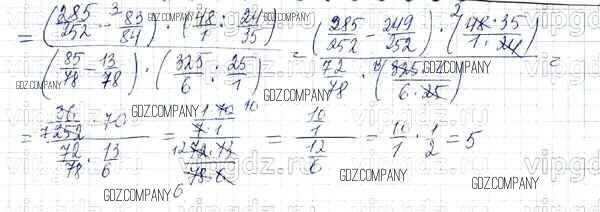 = (285/252 - ³83/84) · (48/1 : 24/35) / (85/78 - 13/78) · (325/6 : 25/1) = (285/252 - 249/252) · (²48 · 35 / 1 · 24) / 72/78 · (325 / 6 · 25) =
= 36/7252 · 70 / 72/78 · 13/6 = 1 70 10 / 7 · 1 / 12 72 · 13 / 78 · 6 = 10/1 / 12/6 = 10/1 · 1/2 = 5
GDZ.COMPANY
GDZ.COMPANY
GDZ.COMPANY
GDZ.COMPANY
GDZ.COMPANY
GDZ.COMPANY
GDZ.COMPANY
GDZ.COMPANY
GDZ.COMPANY
vipgdz.ru
vipgdz.ru
vipgdz.ru